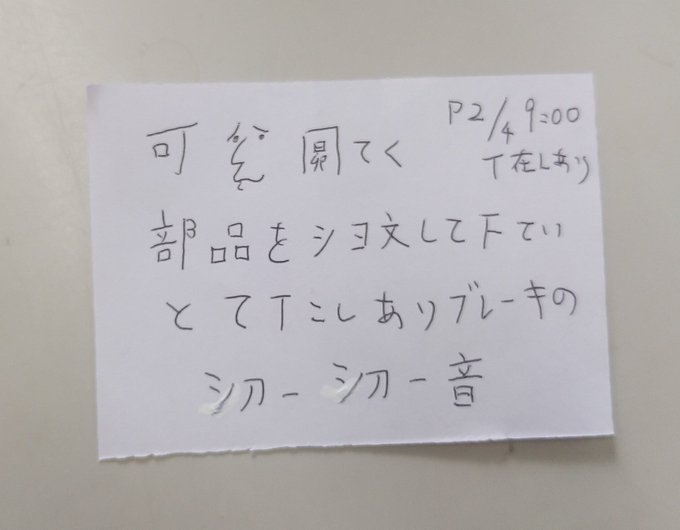 P2/4 9:00
T在しあり
可 開てく
部品をシヨ文して下てい
とてTこしありブレーキの
シ刀ー シ刀ー音